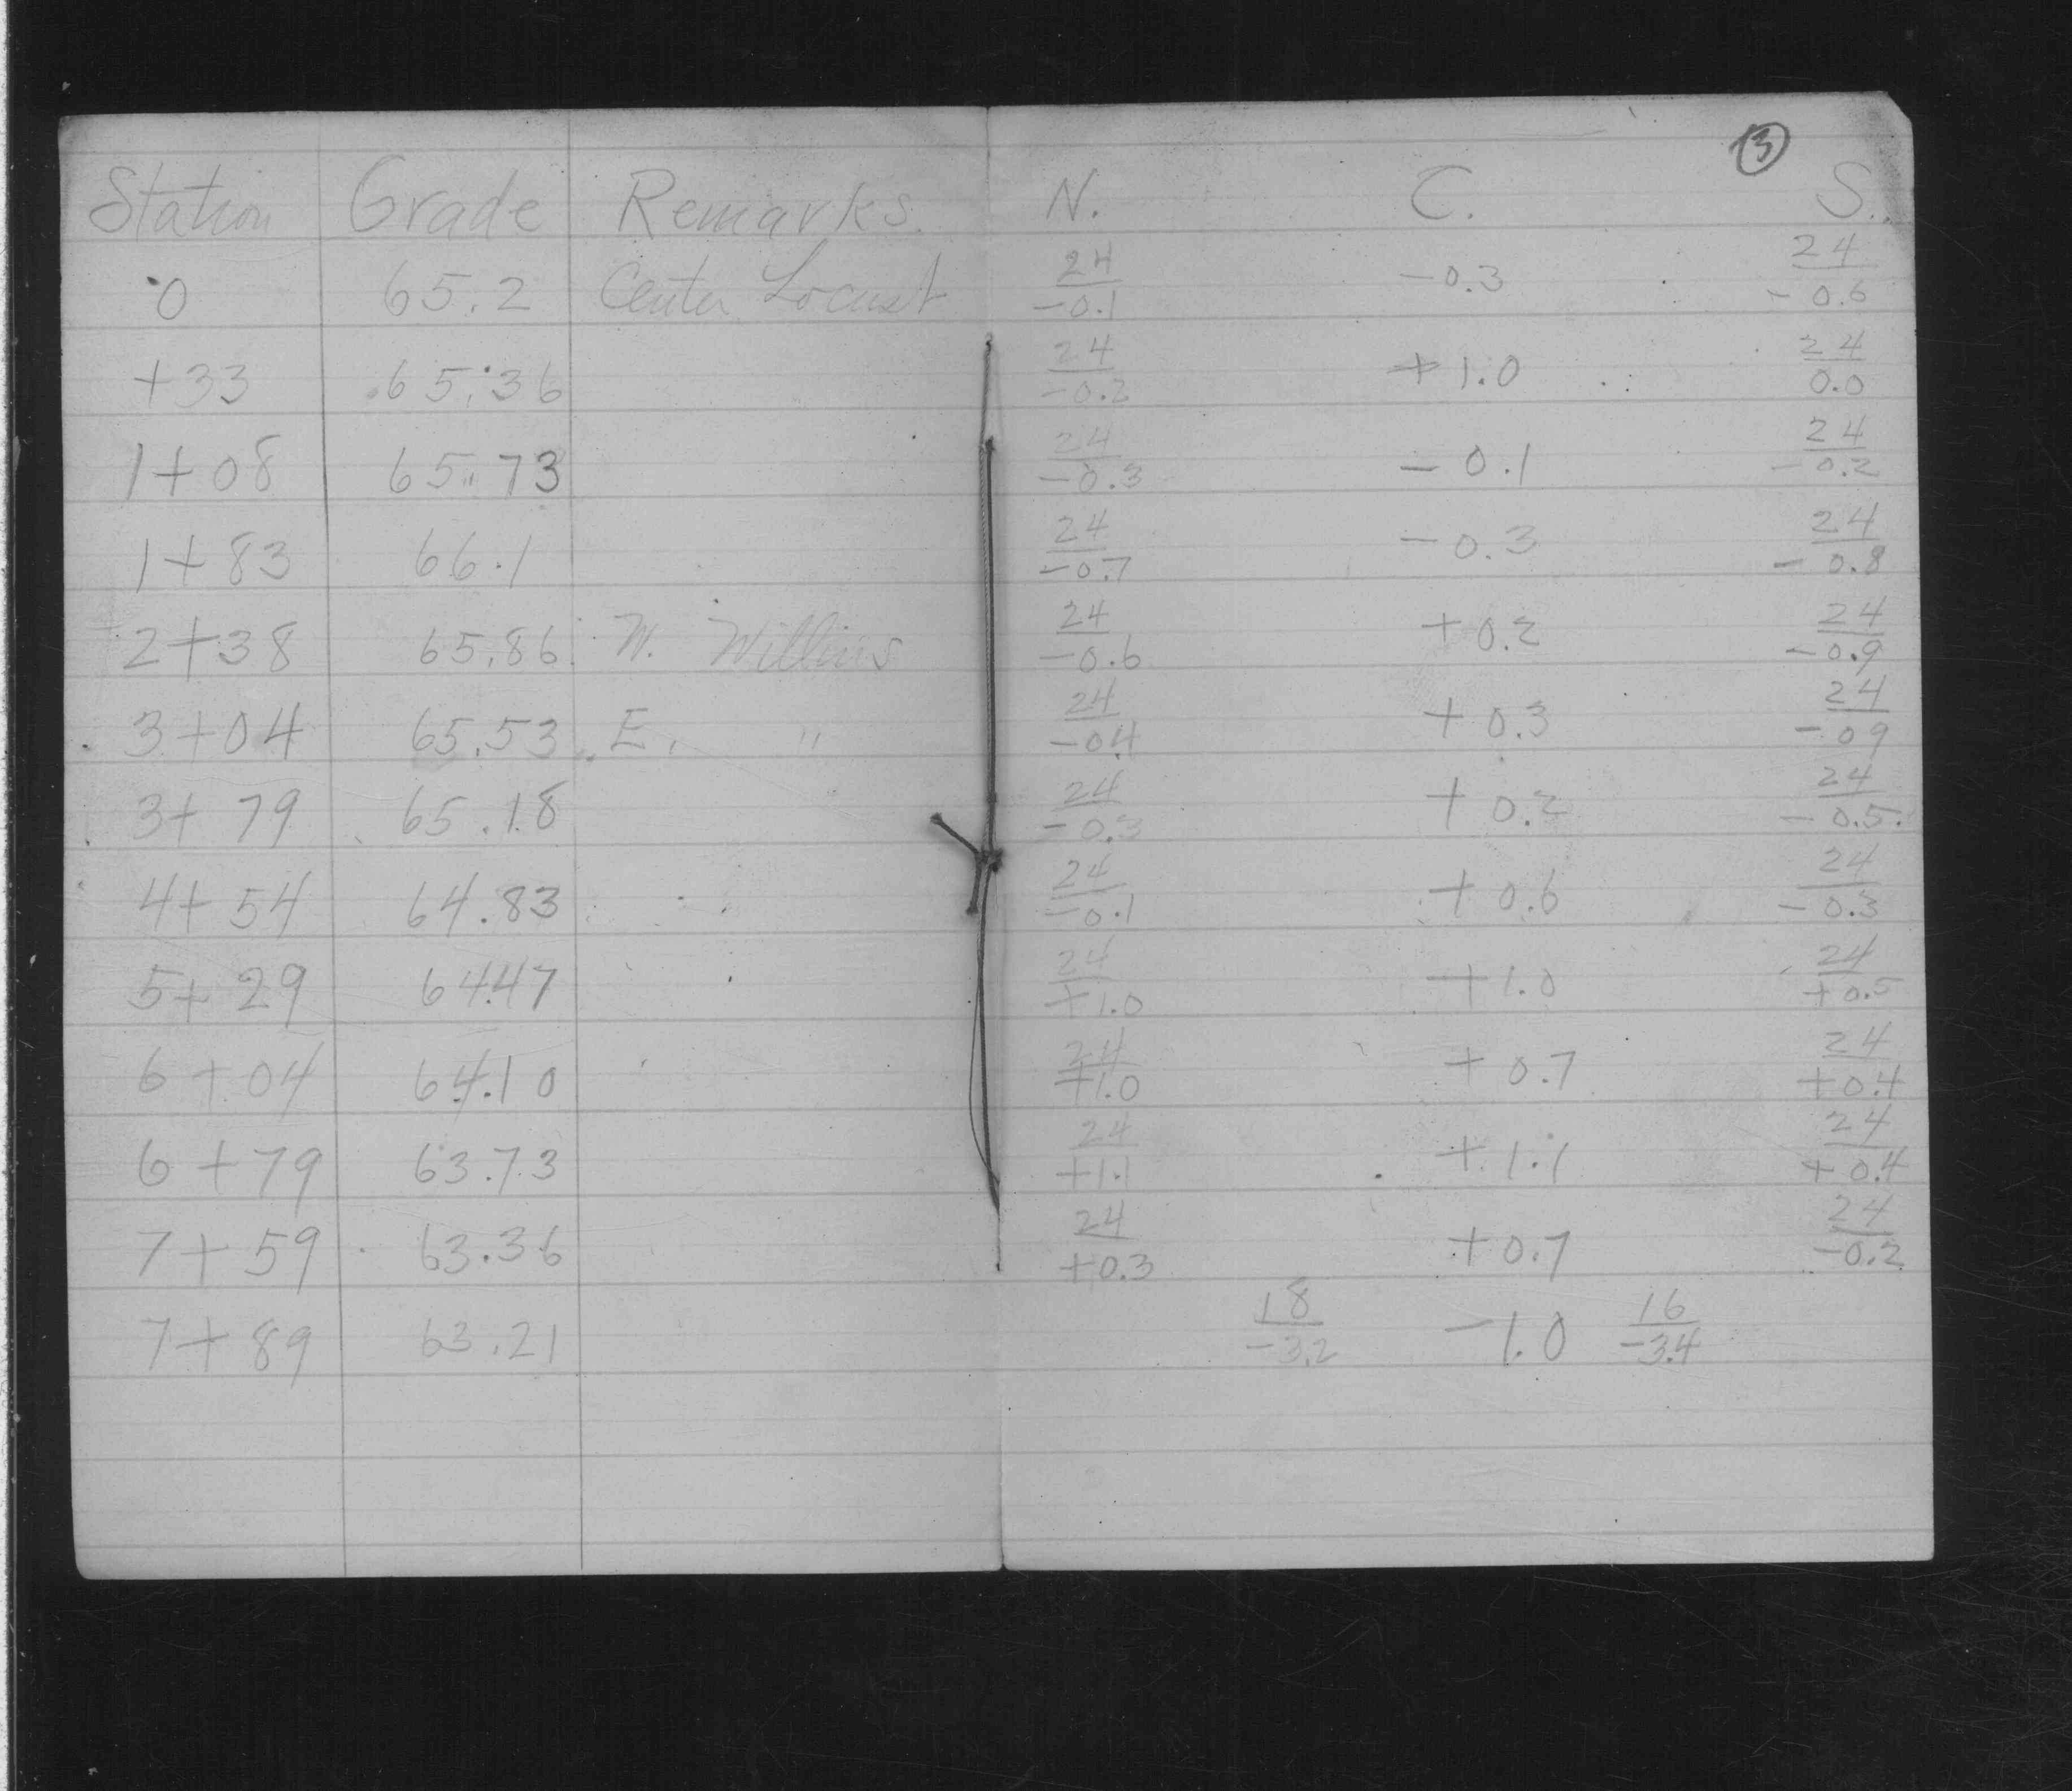 3
Station Grade Remarks. N. C. S.
0 65.2 Center Locust 24/-0.1 -0.3 24/-0.6
+33 65.36 24/-0.2 +1.0 24/0.0
1+08 65.73 24/-0.3 -0.1 24/-0.2
1+83 66.1 24/-0.7 -0.3 24/-0.8
2+38 65.86 W. Willius 24/-0.6 +0.2 24/-0.9
3+04 65.53 E. " 24/-04 +0.3 24/-09
3+79 65.18 24/-0.3 +0.2 24/-0.5
4+54 64.83 24/-0.1 +0.6 24/-0.3
5+29 64.47 24/+1.0 +1.0 24/+0.5
6+04 64.10 24/+1.0 +0.7 24/+0.4
6+79 63.73 24/+1.1 +1.1 24/+0.4
7+59 63.36 24/+0.3 +0.7 24/-0.2
7+89 63.21 18/-3.2 -1.0 16/-3.4